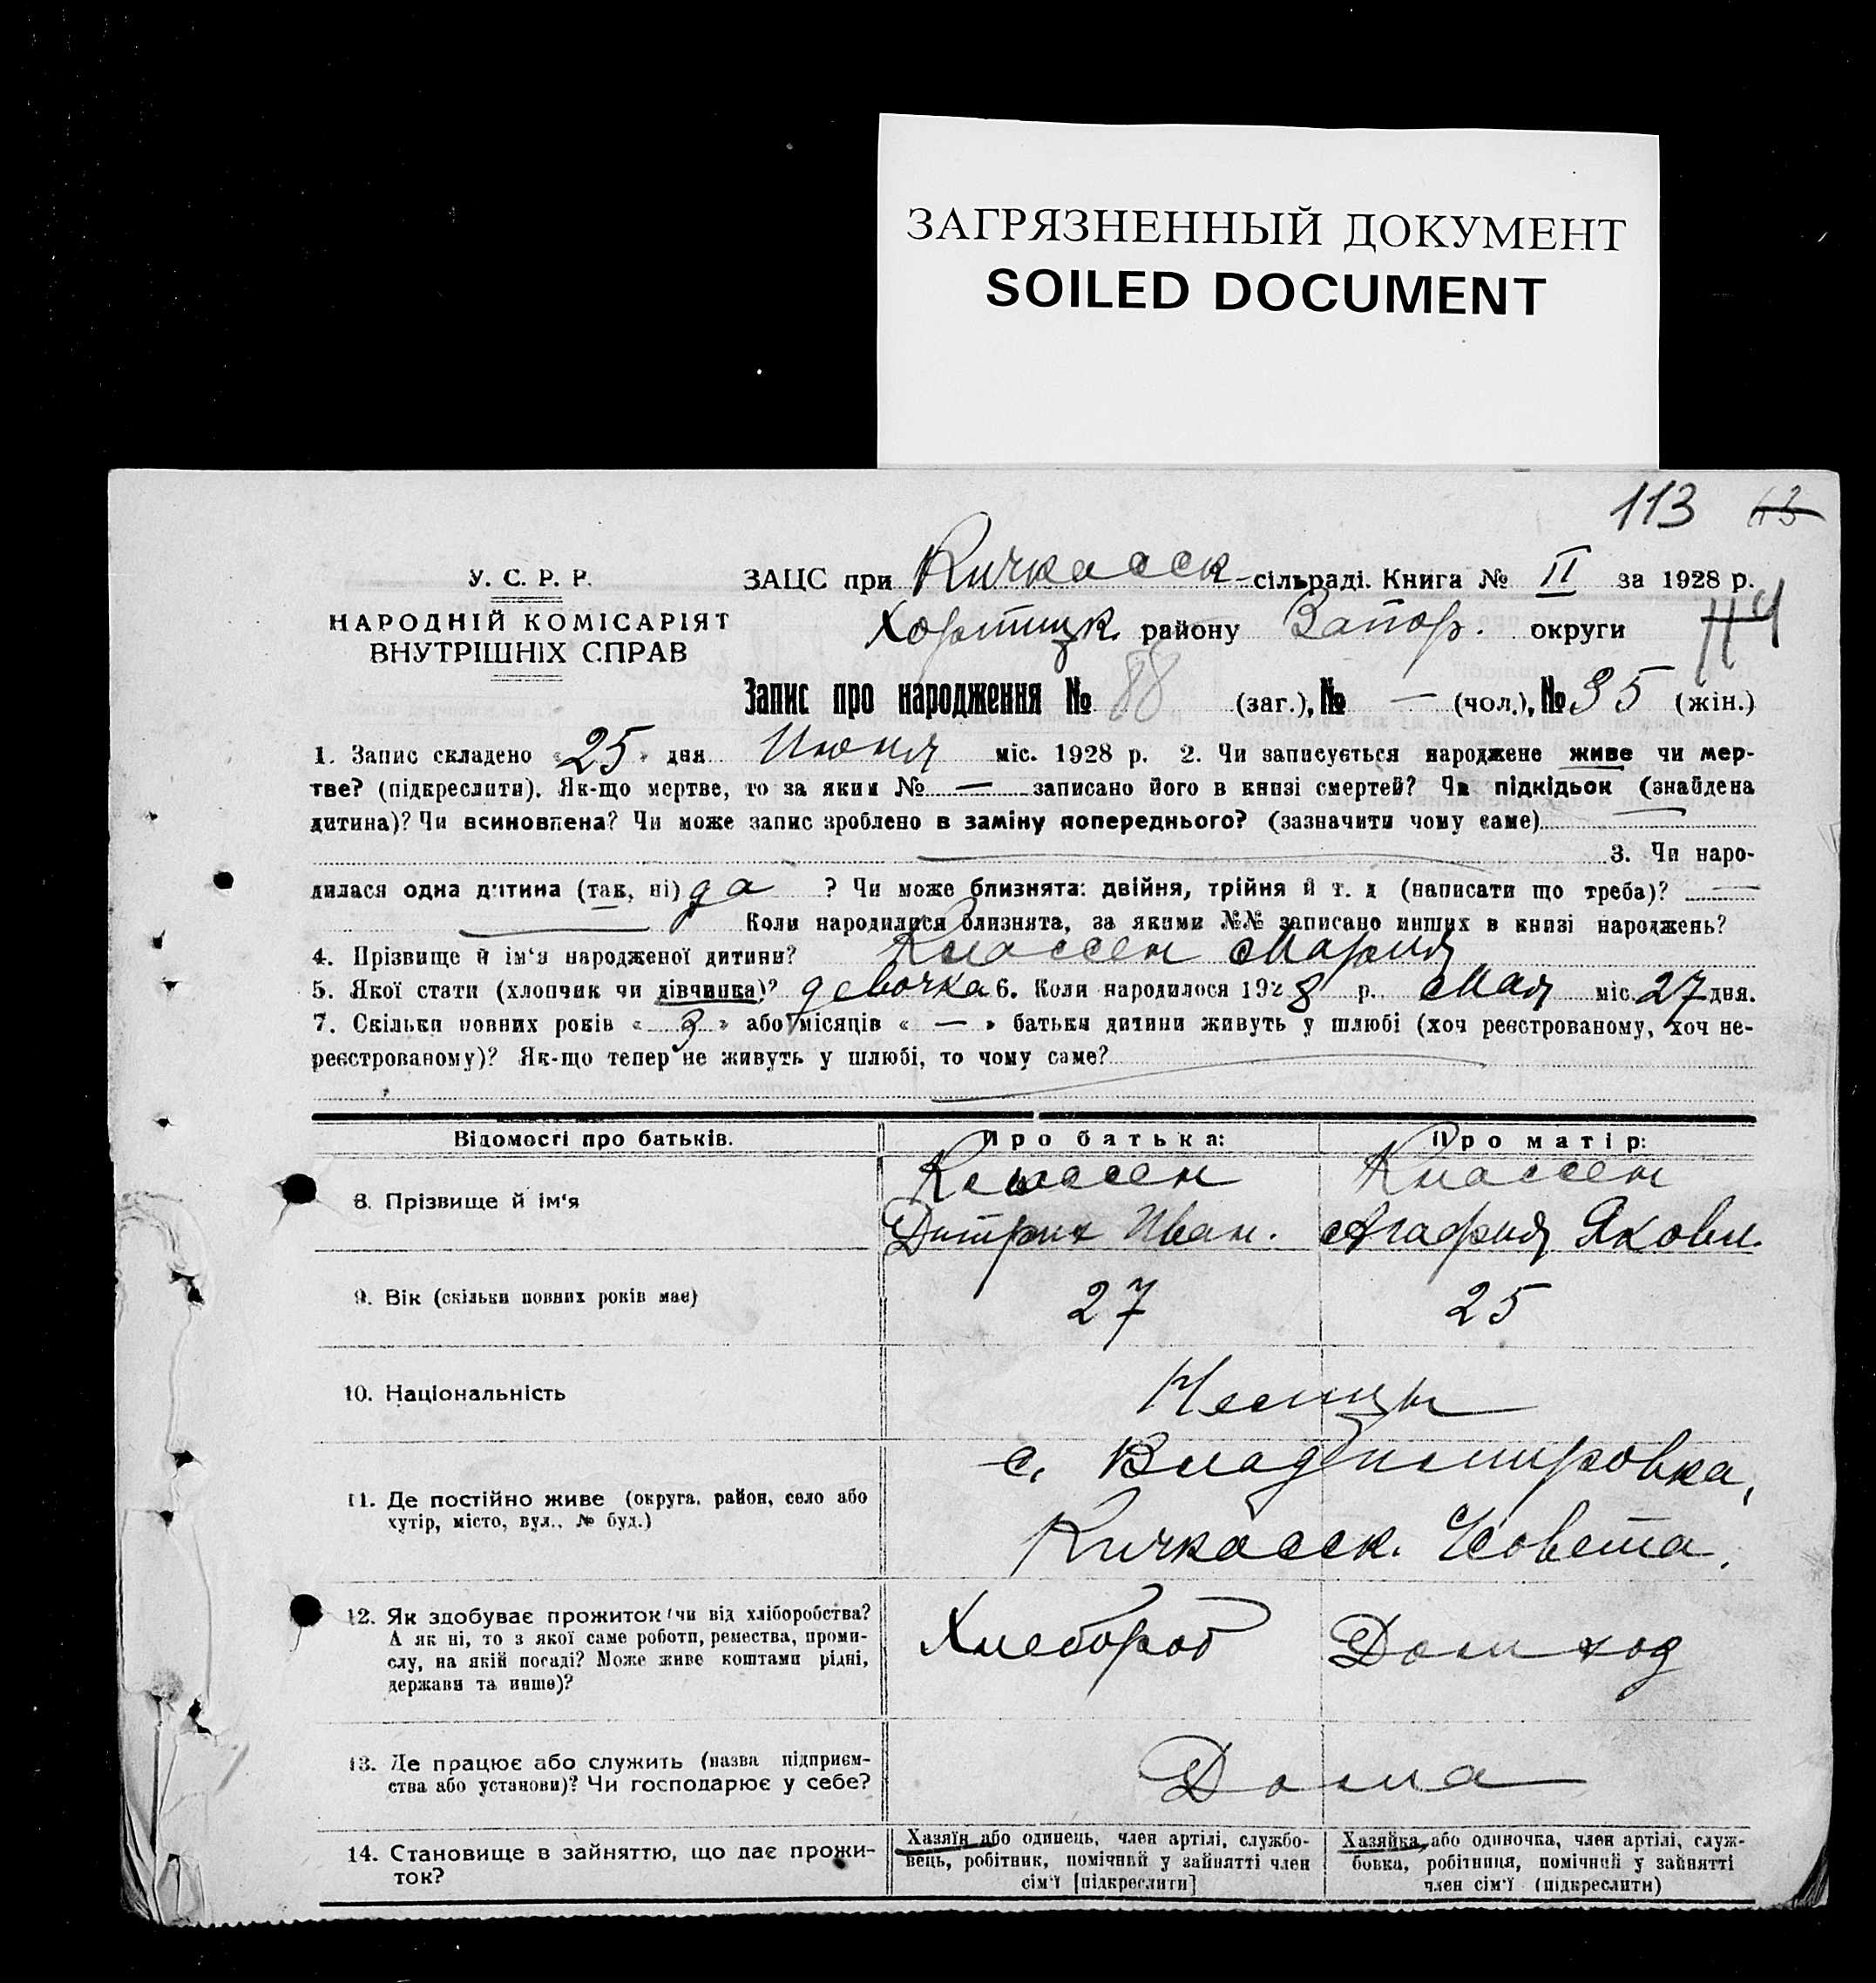 ЗАГРЯЗНЕННЫЙ ДОКУМЕНТ
SOILED DOCUMENT
113 113
У. С. Р. Р.
НАРОДНІЙ КОМІСАРІЯТ
ВНУТРІШНІХ СПРАВ
ЗАЦС при Кичкасск-сільраді. Книга № II за 1928 р.
Хортицк. району Запор. округи
114
Запис про народження № 88 (заг.), № — (чол.), № 35 (жін.)
1. Запис складено « 25 » дня Июня міс. 1928 р. 2. Чи записується народжене живе чи мер-
тве? (підкреслити). Як-що мертве, то за яким № — записано його в книзі смертей? Чи підкідьок (знайдена
дитина)? Чи всиновлена? Чи може запис зроблено в заміну попереднього? (зазначити чому саме)
3. Чи наро-
дилася одна дитина (так, ні) да ? Чи може близнята: двійня, трійня й т. д (написати що треба)? —
Коли народилися близнята, за якими №№ записано инших в книзі народжень?
4. Прізвище й ім'я народженої дитини? Классен Мария
5. Якої стати (хлопчик чи дівчинка)? девочка 6. Коли народилося 1928 р. Мая міс. 27 дня.
7. Скільки повних років « 3 » або місяців « — » батьки дитини живуть у шлюбі (хоч реєстрованому, хоч не-
реєстрованому)? Як-що тепер не живуть у шлюбі, то чому саме?
Відомості про батьків. Про батька: Про матір:
8. Прізвище й ім'я Классен Классен
Дитрих Иван. Агафия Яковл.
9. Вік (скільки повних років має) 27 25
10. Національність Немцы
с. Владимировка,
11. Де постійно живе (округа, район, село або
хутір, місто, вул., № буд.)
Кичкасск. С/совета.
12. Як здобуває прожиток (чи від хліборобства?
А як ні, то з якої саме роботи, ремества, проми-
слу, на якій посаді? Може живе коштами рідні,
держави та инше)?
Хлебороб Дом ход
13. Де працює або служить (назва підприєм-
ства або установи)? Чи господарює у себе?
Дома
14. Становище в зайняттю, що дає прожи-
ток?
Хазяїн або одинець, член артілі, службо-
вець, робітник, помічний у зайнятті член
сім'ї [підкреслити]
Хазяйка або одиночка, член артілі, служ-
бовка, робітниця, помічний у зайнятті
член сім'ї (підкреслити)